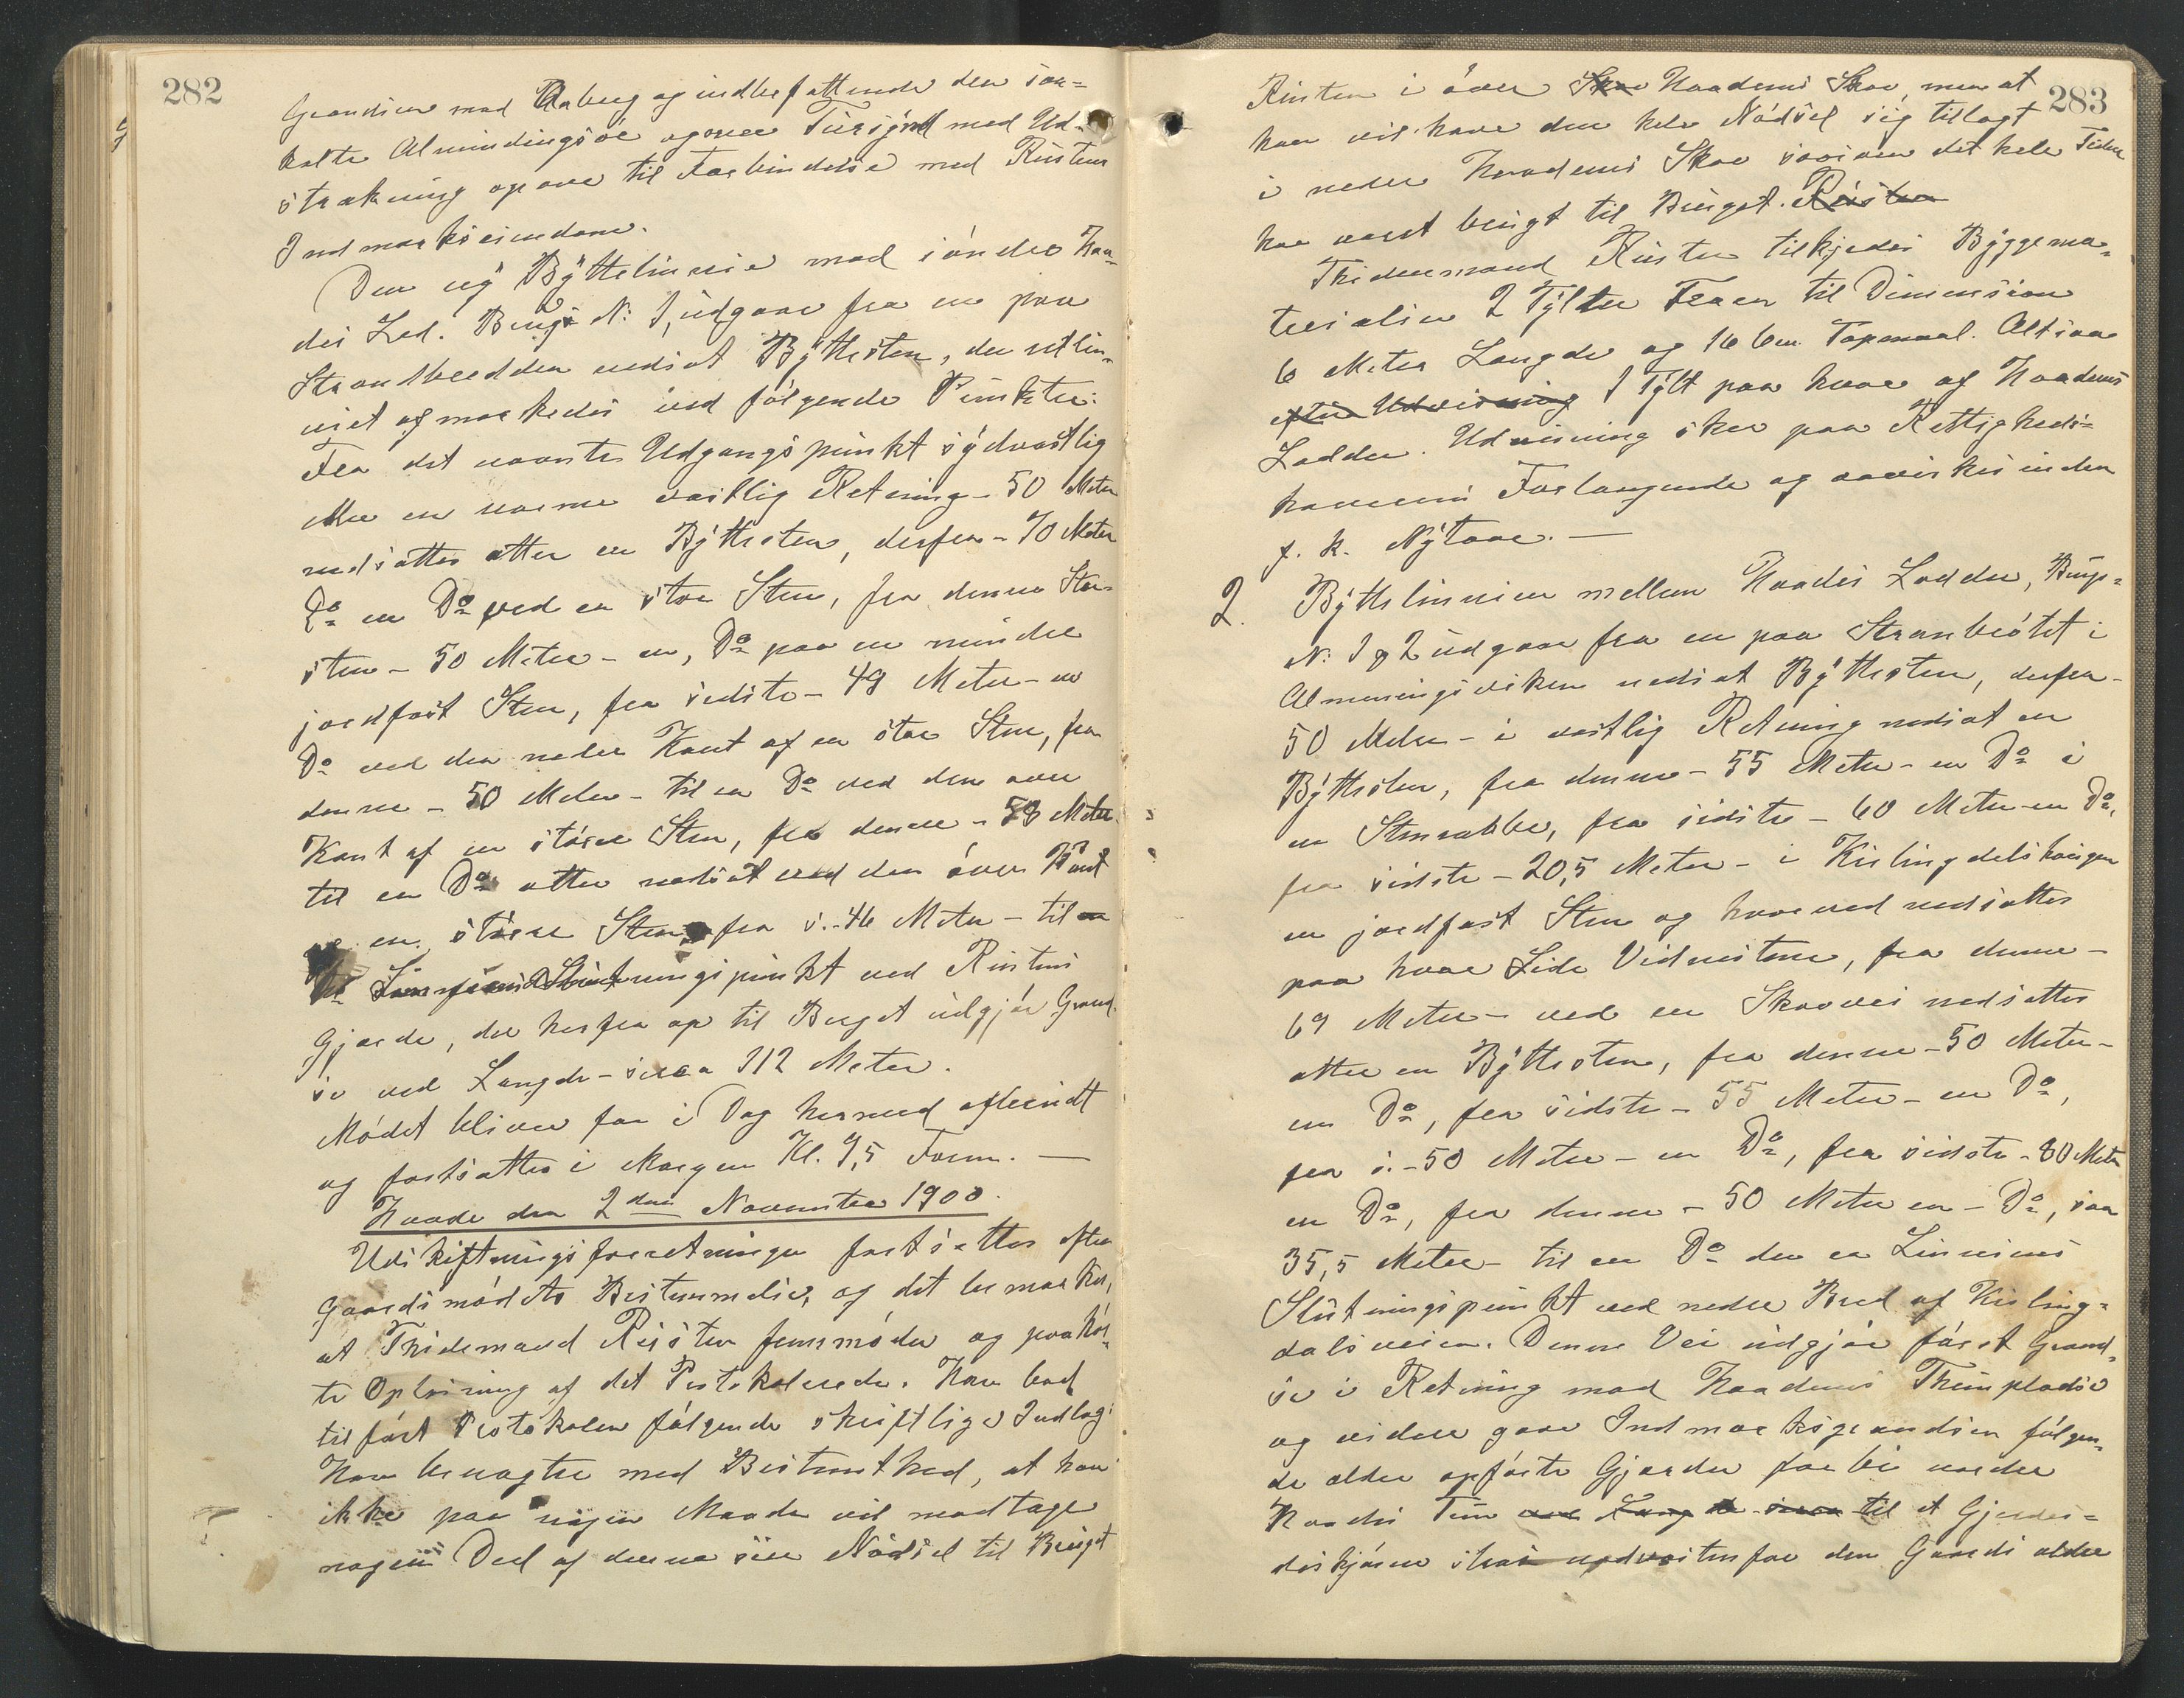 282
Grandsen mod Aaberg og indbefattende den saa-
kalte Almindingsöe og over Tuesÿnd med Ud-
strækning opover til Forbindelse med Rustens
Indmarkseiendom.
Den nÿ Bÿttelinnie mod söndre Haa-
des Lod. Brugs N: 1, udgaar fra en paa
Strandbredden nedsat Bÿttesten, der retlin-
iet afmerkedes ved fölgende Punkter:
Fra det nævnte Udgangspunkt sÿdvestlig
Mer en nærme vestlig Retning - 50 Meter
nedsattes atter en Bÿttesten, derfra - 70 Meter
Do en Do ved en stor Sten, fra denne Stor-
sten - 50 Meter - en, Do paa en mindre
jordfast Sten, fra sidste - 49 Meter - en
Do ved den nedre Kant af en stor Sten, fra
denne - 50 Meter - til en Do ved den övre
Kant af en större Sten, fra denne - 58 Meter
til en Do atter nedsat ved den övre Kant
en större Sten, fra s. - 46 Meter - til en
Do Slutningspunkt ved Rustens
Gjærde, der herfra op til Berget udgjör Grænd-
se ved Længde - sirca 112 Meter.
Mödet bliver for i Dag hermed afbrudt
og fortsættes i Morgen Kl. 9,5 Form. —
Haade den 2den November 1900.
Udskiftningsforretningen fortsættes efter
Gaarsdsmödets Bestemmelse, og det bemærkes,
at Thidemand Rusten fremmöder og paahör-
te Oplæsning af det Protokolerede. Han bad
tilfört Protokolen fölgende skriftlige Indlæg
Han benægter med Bestemthed, at han
ikke paa nogen Maade vil modtage
nogen Del af denne sin Nödsel til Bruget
283
Rusten i övre Skov Haadems Skov, men at
han vil have den hele Nödsel sig tillagt
i nedre Haadems Skov saasom det hele Tiden
har været brugt til Bruget. Rusten
Thidemand Rusten tilkjedes Bÿggema-
terialier 2 Tÿlter Træer til Dimension
6 Meter Længde og 16 Cm. Topmaal. Altsaa
efter Udvisning 1 Tÿlt paa hver af Haadems
Lodder. Udvisning sker paa Rettigheds-
havernes Forlangende og avirkes inden
f. k. Nÿtaar. —
2. Bÿttelinnien mellem Haades Lodder, Brugs-
N: 1 og 2 udgaar fra en paa Stranbrötet i
Almeningsviken nedsat Bÿttesten, derfra -
50 Meter - i vestlig Retning nedsat en
Bÿttesten, fra denne - 55 Meter - en Do i
en Stenrabbe, fra sidste - 60 Meter - en Do,
fra sidste - 20,5 Meter - i Kislingdalshaugen
en jordfast Sten og hvorved nedsattes
paa hver Side Vidnestene, fra denne -
69 Meter - ved en Skovvei nedsattes
atter en Bÿttesten, fra denne - 50 Meter -
en Do, fra sidste - 55 Meter - en Do,
fra s. - 50 Meter - en Do, fra sidste - 80 Meter
en Do, fra denne - 50 Meter en - Do, saa
35,5 Meter - til en Do der er Linniens
Slutningspunkt ved nedre Bred af Kisling-
dalsveien. Denne Vei udgjör först Grænd-
se i Retning mod Haadems Thunpladse
og videre gaar Indmarksgrændsen fölgen-
de ældre opförte Gjærder forbi nordre
Haades Tun ved Længde sirca til et Gjerdes-
diskjörne straks nordvestenfor den Gaards ældre